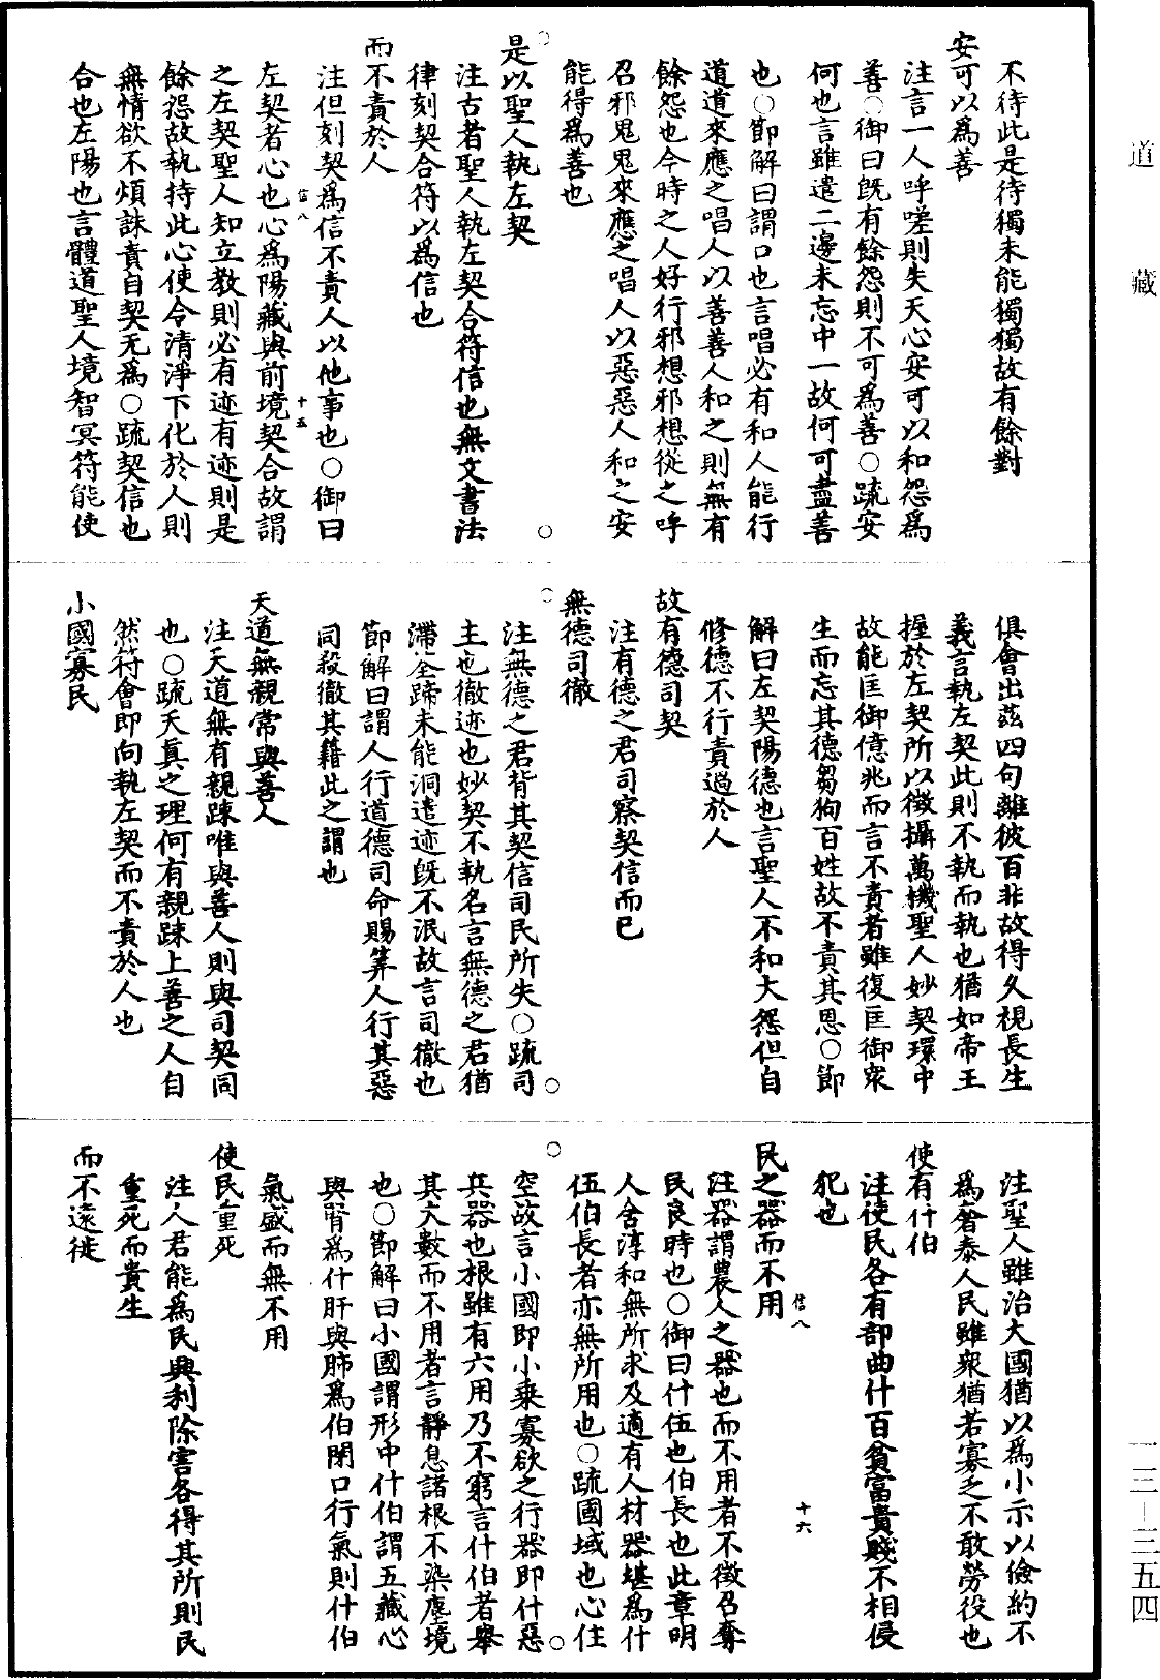 道藏
不待此是待獨未能獨獨故有餘對
安可以為善
注言一人呼嗟則失天心安可以和怨為
善○御曰旣有餘怨則不可為善○疏安
何也言雖遣二邊未忘中一故何可盡善
也○節解曰謂口也言唱必有和人能行
道道來應之唱人以善善人和之則無有
餘怨也今時之人好行邪想邪想從之呼
召邪鬼鬼來應之唱人以惡惡人和之安
能得為善也
是以聖人執左契
注古者聖人執左契合符信也無文書法
律刻契合符以為信也
而不責於人
注但刻契為信不責人以他事也○御曰
信八 十五
左契者心也心為陽藏與前境契合故謂
之左契聖人知立教則必有迹有迹則是
餘怨故執持此心使令清淨下化於人則
無情欲不煩誅責自契无為○疏契信也
合也左陽也言體道聖人境智冥符能使
俱會出茲四句離彼百非故得久視長生
義言執左契此則不執而執也猶如帝王
握於左契所以徵攝萬機聖人妙契環中
故能匡御億兆而言不責者雖復匡御衆
生而忘其德芻狗百姓故不責其恩○節
解曰左契陽德也言聖人不和大怨但自
修德不行責過於人
故有德司契
注有德之君司察契信而已
無德司徹
注無德之君背其契信司民所失○疏司
主也徹迹也妙契不執名言無德之君猶
滯筌蹄未能洞遣迹旣不泯故言司徹也
節解曰謂人行道德司命賜筭人行其惡
司殺徹其籍此之謂也
天道無親常與善人
注天道無有親踈唯與善人則與司契同
也○疏天真之理何有親踈上善之人自
然符會即向執左契而不責於人也
小國寡民
注聖人雖治大國猶以為小示以儉約不
為奢泰人民雖衆猶若寡乏不敢勞役也
使有什伯
注使民各有部曲什百貧富貴賤不相侵
犯也
信八 十六
民之器而不用
注器謂農人之器也而不用者不徵召奪
民良時也○御曰什伍也伯長也此章明
人含淳和無所求及適有人材器堪為什
伍伯長者亦無所用也○疏國域也心住
空故言小國即小乘寡欲之行器即什惡
兵器也根雖有六用乃不窮言什伯者舉
其大數而不用者言靜息諸根不染塵境
也○節解曰小國謂形中什伯謂五藏心
與腎為什肝與肺為伯閉口行氣則什伯
氣盛而無不用
使民重死
注人君能為民興利除害各得其所則民
重死而貴生
而不遠徙
一三—三五四